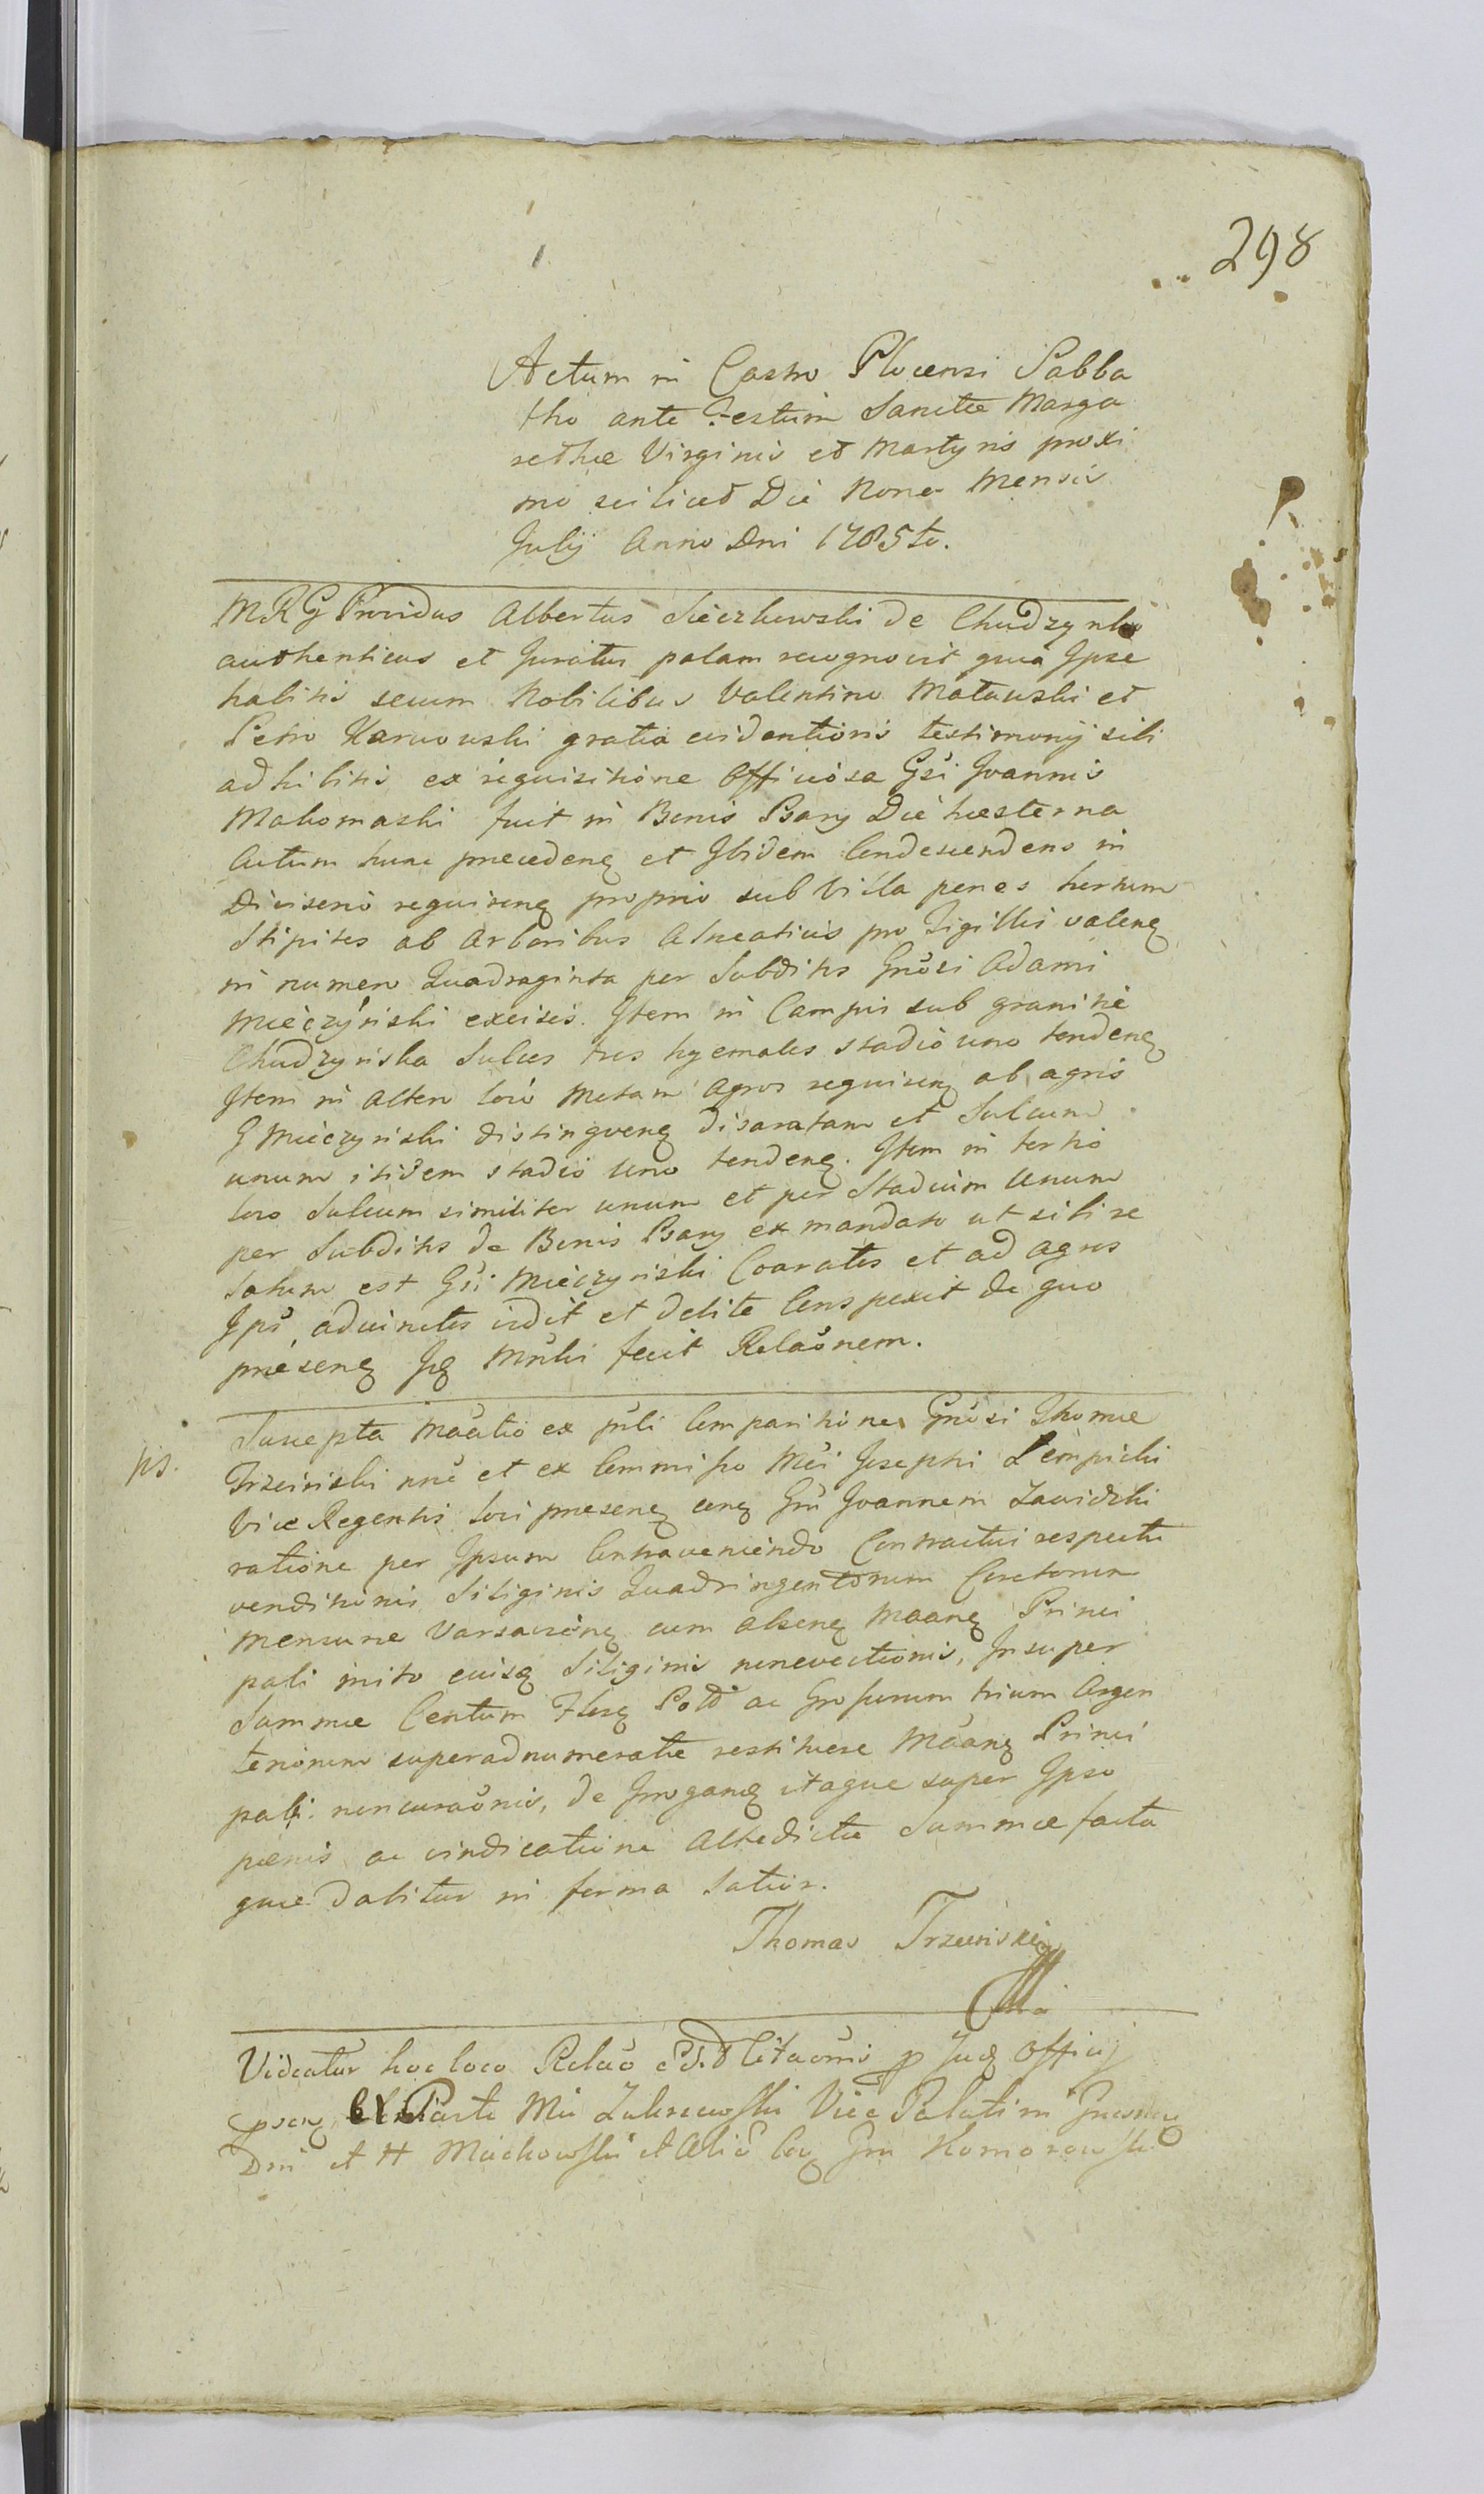 298
Actum in Castro Plocensi Sabba
tho ante Festum Sanctæ Marga
rethæ Virginis et Martyris proxi
mo scilicet Die Nona Mensis
Julij Anno Dni 1785to.
MRG Providus Albertus Sieczkowski de Chudzynko
authenticus et Juratus palam recognovit quia Ipse
habitis secum Nobilibus Valentino Matowski et
Petro Karwowski gratia evidentioris testimonij sibi
adhibitis ex requisitione Officiosa Gsi Joannis
Makomaski fuit in Bonis Psary Die hæsterna
Actum hunc præcedenę et Ibidem Condescendens in
Diviserio requirenę proprio sub Villa penes hortum
Stipites ab Arboribus Alneatius pro Tigillis valenę
in numero Quadraginta per Subditos Gnosi Adami
Mieczyński excisis. Item in Campis sub granitie
Chudzyńska Sulcos tres hyemales stadio uno tendenę
Item in Altero loco Metam Agros requirenę ab agris
G Mieczyński distingvenę disaratam et Sulcum
unum itidem stadio Uno tendenę. Item in tertio
loco Sulcum similiter unum et per Stadium Unum
per Subditos de Bonis Psary ex mandato ut sibi re
latum est Gsi Mieczyński Coaratos et ad agros
Ipsŏ adiunctos vidit et debite Conspexit de quo
præsenę Jzę Mŏlti fecit Relaŏnem.
ps.
Suscepta Moŏtio ex psŏli Comparitione Gnŏsi Thomæ
Trzcinski nnĕ et ex Commisso Mĕi Josephi Lempicki
Vice Regentis loci præsenę conę Gsŭ Joannem Zawidzki
ratione per Ipsum Contraveniendo Contractui respectu
venditionis Siliginis Quadringentorum Coretorum
mensuræ Varsavienę cum Absenę Moanę Princi
pali inito eiusę Siliginis nonevectionis, Insuper
Summæ Centum Flosę Pold ac Grossorum trium Argen
teriorum superadnumeratæ restituere Moanę Princi
pali noncuraŏnis, de Irroganę itaque super Ipso
pœnis ac vindicatione Altedictæ Summæ facta
quæ dabitur in forma Latiŏr.
Thomas Trzcinski
Videatur hoc loco Relaŏ Citaŏnis p Judę Officij
psenę Ex Parte Vice Palatini
Dni et H Michowski et Aliŏ Coę Gsŭ Komorowski